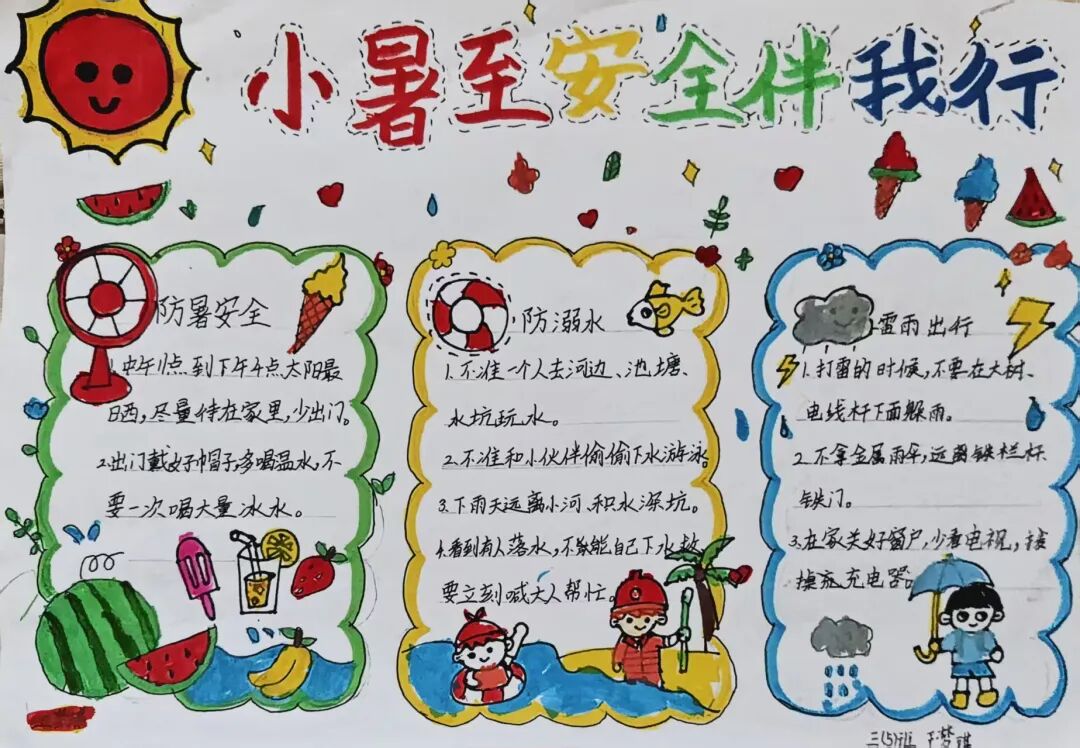 小暑至安全伴我行
防暑安全
1.中午1点到下午4点.太阳最
晒,尽量待在家里,少出门。
2.出门戴好帽子,多喝温水,不
要一次喝大量冰水。
防溺水
1.不准一个人去河边、池塘、
水坑玩水。
2.不准和小伙伴偷偷下水游泳。
3.下雨天远离小河、积水深坑。
4.看到有人落水,不能自己下水救
要立刻喊大人帮忙。
雷雨出行
1.打雷的时候,不要在大树、
电线杆下面躲雨。
2.不拿金属雨伞,远离铁栏杆
铁门。
3.在家关好窗户,少看电视,拔
掉充充电器。
三(5)班